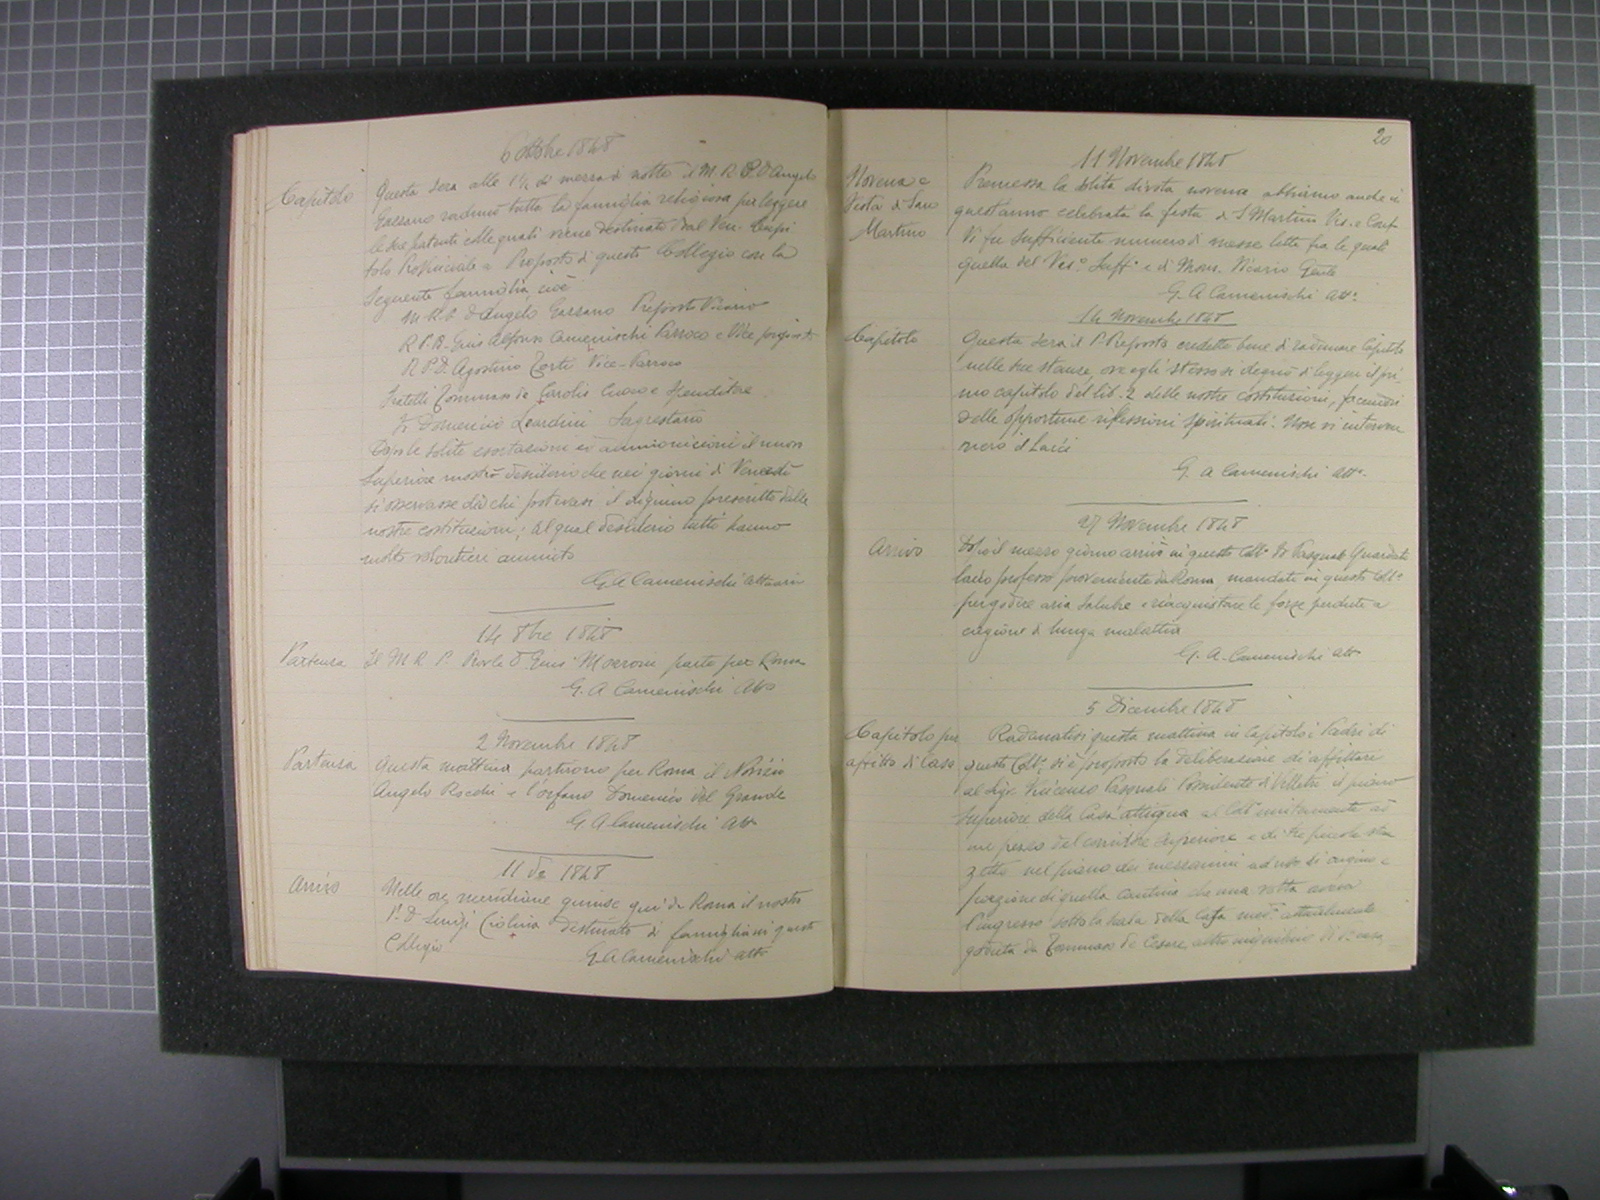 6 Ottobre 1848
Capitolo
Questa sera alle 1½ di mezza di notte il M. R. P. D. Angelo
Gassano radunò tutta la famiglia religiosa per leggere
le sue patenti colle quali viene destinato dal Ven. Capi
tolo Provinciale a Preposto di questo Collegio con la
seguente famiglia, cioè
M. R. P. D. Angelo Gassano Preposto Vicario
R. P. D. Gius Alfonso Camenischi Parroco e Vice preposto
R. P. D. Agostino Corti Vice-Parroco
Fratelli Tommaso de Carolis Cuoco e Spenditore
Fr Domenico Leardini Sagrestano
Dopo le solite esortazioni ed ammonizioni il nuovo
Superiore mostrò desiderio che nei giorni di Venerdì
si osservasse da chi potevasi il digiuno prescritto dalle
nostre costituzioni; al qual desiderio tutti hanno
molto volontieri annuito
G. A Camenischi attuario
14 8bre 1848
Partenza
Il M R P. D. Gius Maeroni parte per Roma
G. A Camenischi Attº
2 Novembre 1848
Partenza
Questa mattina partirono per Roma il Novizio
Angelo Rocchi e l'orfano Domenico Del Grande
G. A Camenischi Attº
11 do 1848
Arrivo
Nelle ore meridiane giunse qui da Roma il nostro
P. D Luigi Ciolina destinato di famiglia in questo
Collegio
G. A Camenischi attº
20
11 Novembre 1848
Novena e
Festa di San
Martino
Premessa la solita divota novena abbiamo anche in
quest'anno celebrata la festa di S Martino Ves. e Conf.
Vi fu sufficiente numero di messe lette fra le quali
quella del Vesº Suffº e di Mons. Vicario Gnle
G. A Camenischi attº.
14 Novembre 1848
Capitolo
Questa sera il P. Preposto credette bene di radunare Capitolo
nelle sue stanze, ove egli stesso si degnò di leggere il pri_
mo capitolo del lib. 2 delle nostre costituzioni, facendosi
delle opportune riflessioni spirituali. Non vi interven
nero i Laici
G. A Camenischi attº.
27 Novembre 1848
Arrivo
Dopo il mezzo giorno arrivò in questo Collº Fr Pasquale Guardati
laico professo proveniente da Roma, mandato in questo Collº
per godere aria salubre e riacquistare le forze perdute a
cagione di lunga malattia
G. A. Camenischi attº
5 Dicembre 1848
Capitolo per
affitto di Casa
Radunatisi questa mattina in Capitolo i Padri di
questo Collº, si è proposto la deliberazione di affittare
al Sigr Vincenzo Pasquali Possidente di Velletri il piano
superiore della Casa attigua al Collº unitamente ad
un pezzo del corridore superiore e di tre piccole stan
zette nel piano dei mezzanini ad uso di cucina e
porzione di quella cantina che una volta aveva
l'ingresso sotto la scala della Casa med.ª attualmente
goduta da Tommaso de Cesare, altro inquilino di